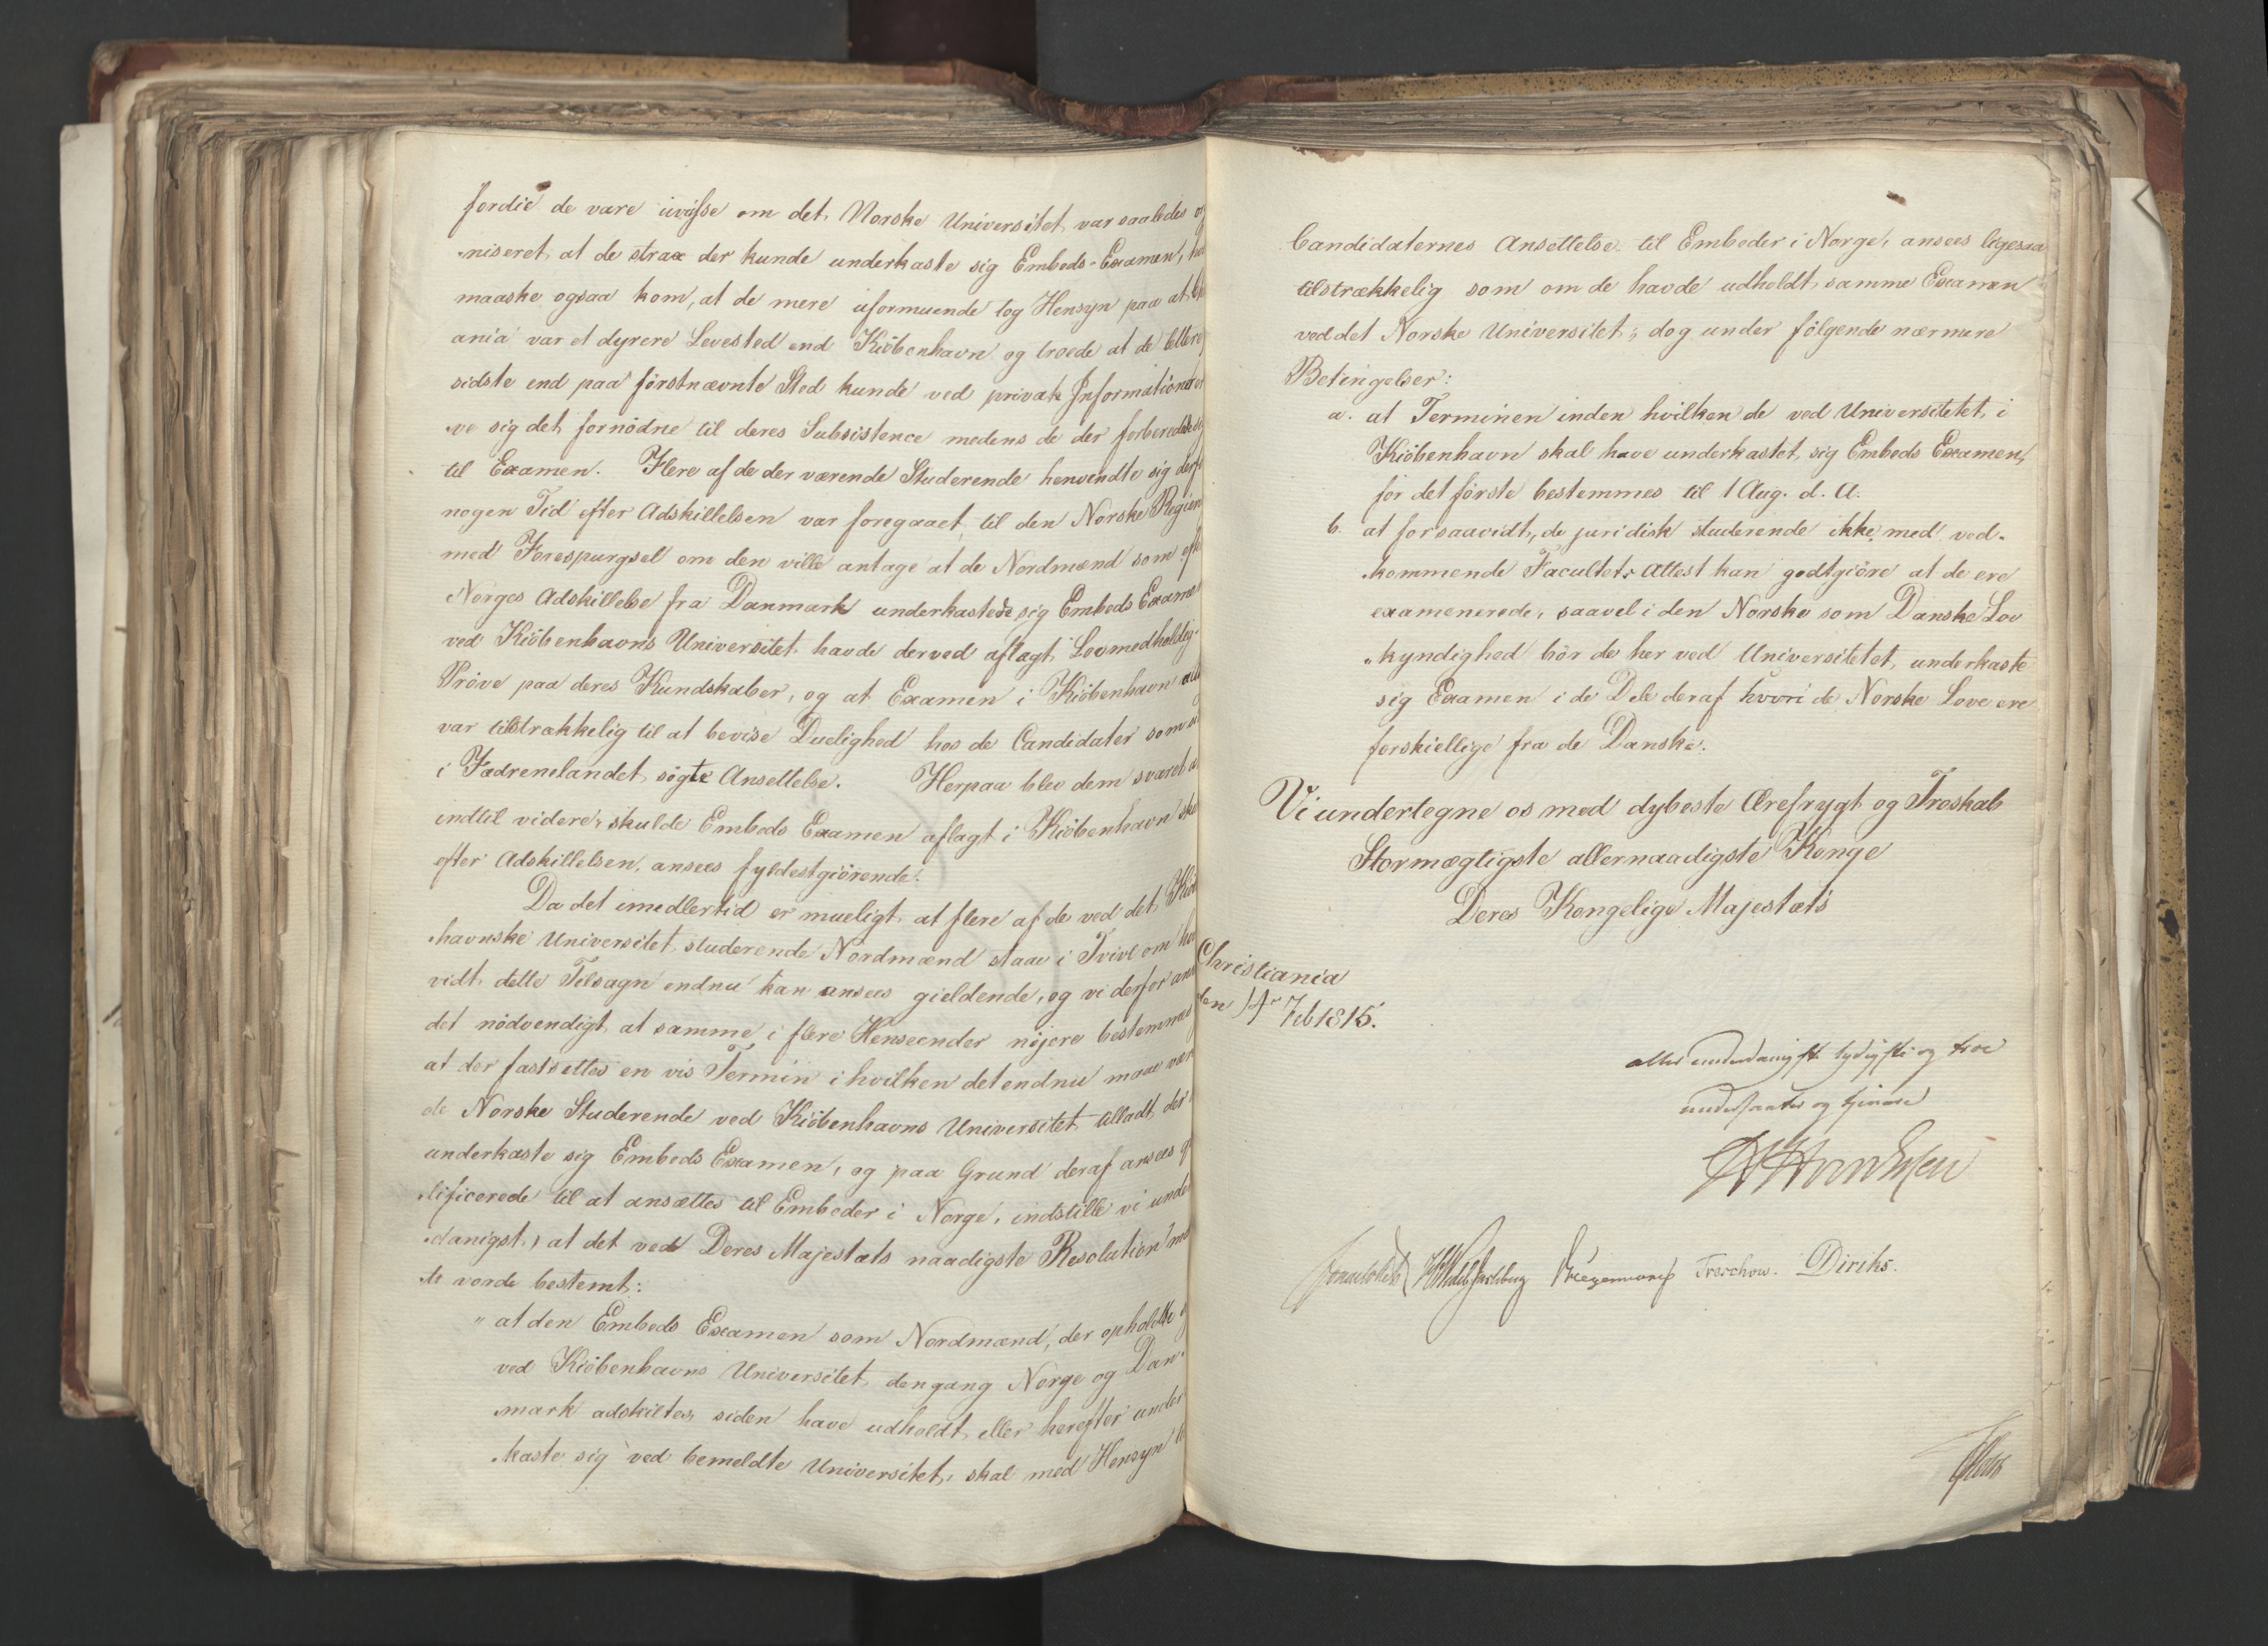 fordie de vare uvisse om det Norske Universitet var saaledes
niseret at de strax der kunde underkaste sig Embeds-Examen,
maaske ogsaa kom, at de mere uformuende tog Hensyn paa at
ania var et dyrere Levested end Kiöbenhavn og troede at de lettere
sidste end paa förstnævnte Sted kunde ved privat Informationer
ve sig det fornödne til deres Subsistence medens de der forberedede
til Examen. Flere af de der værende Studerende henvendte sig
nogen Tid efter Adskillelsen var foregaaet til den Norske
med Forespurgsel om den ville antage at de Nordmænd som
Norges Adskillelse fra Danmark underkastede sig Embeds
ved Kiöbenhavns Universitet havde derved aflagt Lovmedholdig
Pröve paa deres Kundskaber, og at Examen i Kiöbenhavn
var tilstrækkelig til at bevise Duelighed hos de Candidater som
i Fædrenelandet sögte Ansettelse. Herpaa blev dem svaret
indtil videre skulde Embeds Examen aflagt i Kiöbenhavn
efter Adskillelsen, ansees fyldestgiörende.
Da det imedlertid er mueligt at flere af de ved det
havnske Universitet studerende Nordmænd staae i Tvivl om
vidt dette Tilsagn endnu kan ansees gieldende, og vi derfor
det nödvendigt at samme i flere Henseender nöjere bestemmes
at der fastsettes en vis Termin i hvilken det endnu maae
de Norske Studerende ved Kiöbenhavns Universitet tilladt der
underkaste sig Embeds Examen, og paa Grund deraf ansees
lificerede til at ansættes til Embeder i Norge, indstille vi
danigst, at det ved Deres Majestæts naadigste Resolution
te vorde bestemt:
" at den Embeds Examen som Nordmænd, der opholdte
ved Kiöbenhavns Universitet dengang Norge og Dan
mark adskiltes, siden have udholdt, eller herefter under
kaste sig ved bemeldte Universitet, skal med Hensyn
Candidaternes Ansettelse til Embeder i Norge, ansees ligesaa
tilstrækkelig som om de havde udholdt samme Examen
ved det Norske Universitet; dog under fölgende nærmere
Betingelser:
a. at Terminen inden hvilken de ved Universitetet i
Kiöbenhavn skal have underkastet sig Embeds Examen,
for det förste bestemmes til 1 Aug. d. A.
b. at forsaavidt, de juridisk studerende ikke med ved-
kommende Facultets Attest kan godtgiöre at de ere
examenerede, saavel i den Norske som Danske Lov
kyndighed bör de her ved Universitetet underkaste
sig Examen i de Dele deraf hvori de Norske Love ere
forskiellige fra de Danske.
Vi undertegne os med dybeste Ærefrygt og Troskab
Stormægtigste allernaadigste Konge
Deres Kongelige Majestæts
Christiania
den 14 Feb 1815.
allerunderdanigste lydigste og troe
undersaatter og tjenere
Treschow. Diriks.